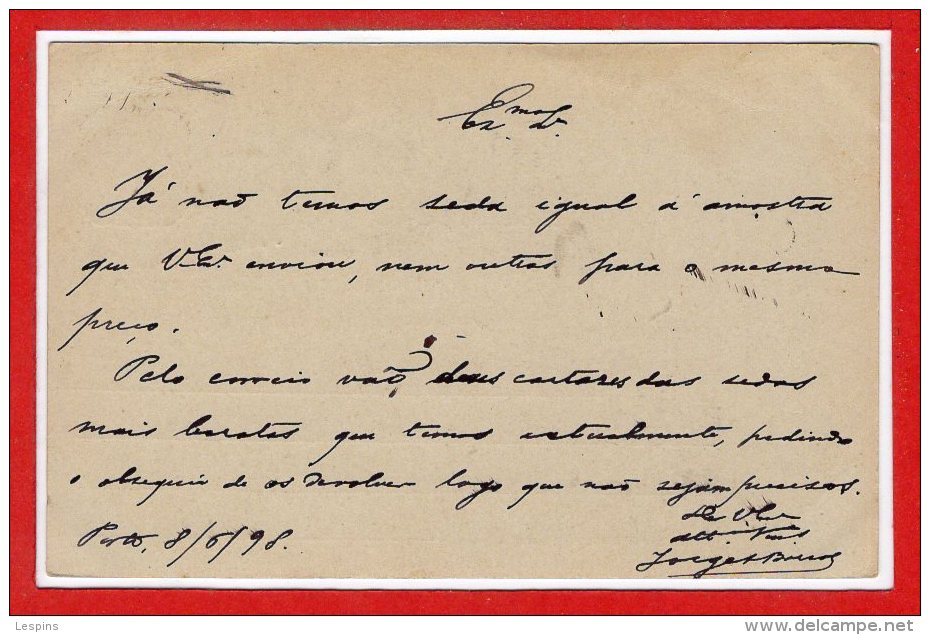 Exmo Sr.
Já não temos seda igual á amostra
que V. Exa. enviou, nem outras para o mesmo
preço.
Pelo correio vão dous cartazes das sedas
mais baratas que temos actualmente, pedindo
o obsequio de os devolver logo que não sejam precisos.
De V. Exa
Porto, 8/6/98.
Lespins
http://www.delcampe.net